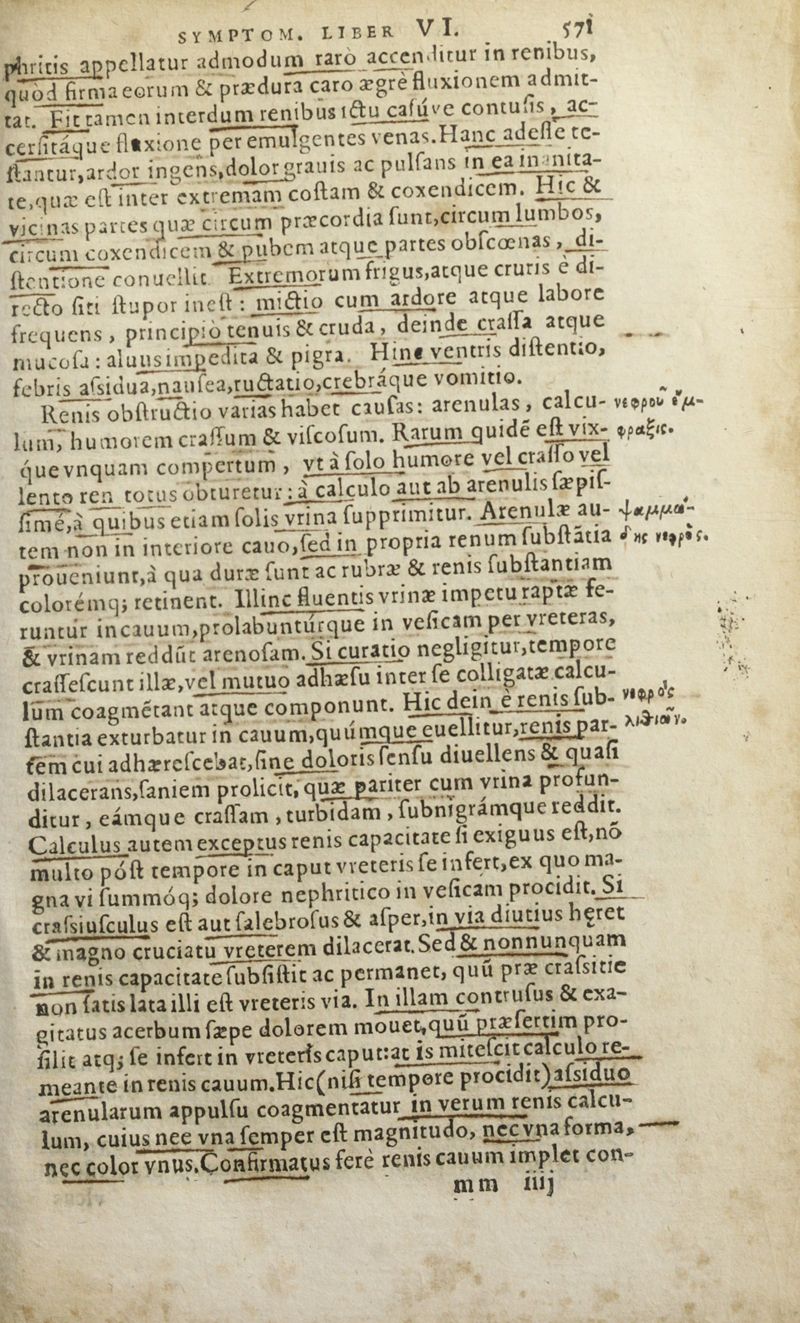 SYMPTOM. LIBER VI. 571
phritis appellatur admodum rarò accenditur in renibus,
quòd firma eorum & prædura caro ægrè fluxionem admit-
tat. Fit tamen interdum renibus ictu casúve contusis, ac-
cersitáque fluxione per emulgentes venas. Hanc adesse te-
stantur, ardor ingens, dolor grauis ac pulsans in ea
te, quæ est inter extremam costam & coxendicem. Hic &
vicinas partes quæ circum præcordia sunt, circum lumbos,
circum coxendicem & pubem atque partes obscœnas, di-
stentione conuellit. Extremorum frigus, atque cruris è di-
recto siti stupor inest: mictio cum ardore atque labore
frequens, principiò tenuis & cruda, deinde crassa atque
mucosa: aluus impedita & pigra. Hinc ventris distentio,
febris assidua, nausea, ructatio, crebráque vomitio.
Renis obstructio varias habet causas: arenulas, calcu- νεφροῦ ἔμ-
lum, humorem crassum & viscosum. Rarum quidē est vix- φραξις.
que vnquam compertum, vt à solo humore vel crasso vel
lento ren totus obturetur: à calculo aut ab arenulis sæpis-
simé, à quibus etiam solis vrina supprimitur. Arenulæ au- ψαμμώ-
tem non in interiore cauo, sed in propria renum substātia δης νεφρός.
proueniunt, à qua duræ sunt ac rubræ & renis substantiam
colorémq; retinent. Illinc fluentis vrinæ impetu raptæ fe-
runtur in cauum, prolabunturque in vesicam per vreteras,
& vrinam reddūt arenosam. Si curatio negligitur, tempore
crassescunt illæ, vel mutuo adhæsu inter se colligatæ calcu-
lum coagmētant atque componunt. Hic dein è renis sub- νεφρὸς
stantia exturbatur in cauum, quúmque euellitur, renis par- λιθιῶν.
tem cui adhærescebat, sine doloris sensu diuellens & quasi
dilacerans, saniem prolicit, quæ pariter cum vrina profun-
ditur, eámque crassam, turbidam, subnigrámque reddit.
Calculus autem exceptus renis capacitate si exiguus est, nō
multo pòst tempore in caput vreteris se infert, ex quo ma-
gna vi summóq; dolore nephritico in vesicam procidit. Si
crassiusculus est aut salebrosus & asper, in via diutius hęret
& magno cruciatu vreterem dilacerat. Sed & nonnunquam
in renis capacitate subsistit ac permanet, quū præ crassitie
non satis lata illi est vreteris via. In illam contrusus & exa-
gitatus acerbum sæpe dolorem mouet, quū præsertim pro-
silit atq; se infert in vreteris caput: at is mitescit calculo re-
meante in renis cauum. Hic (nisi tempore procidit) assiduo
arenularum appulsu coagmentatur in verum renis calcu-
lum, cuius nec vna semper est magnitudo, nec vna forma,
nec color vnus. Confirmatus ferè renis cauum implet con-
mm iiij